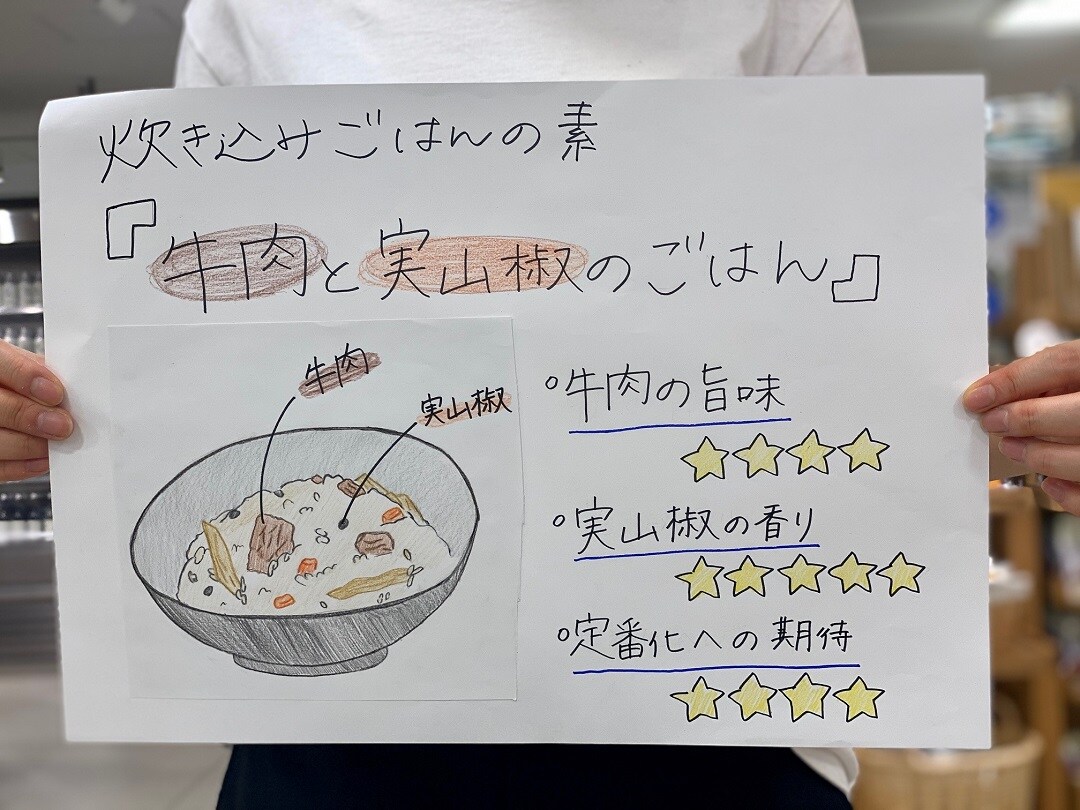 炊き込みごはんの素
『牛肉と実山椒のごはん』
牛肉
実山椒
○牛肉の旨味
○実山椒の香り
○定番化への期待